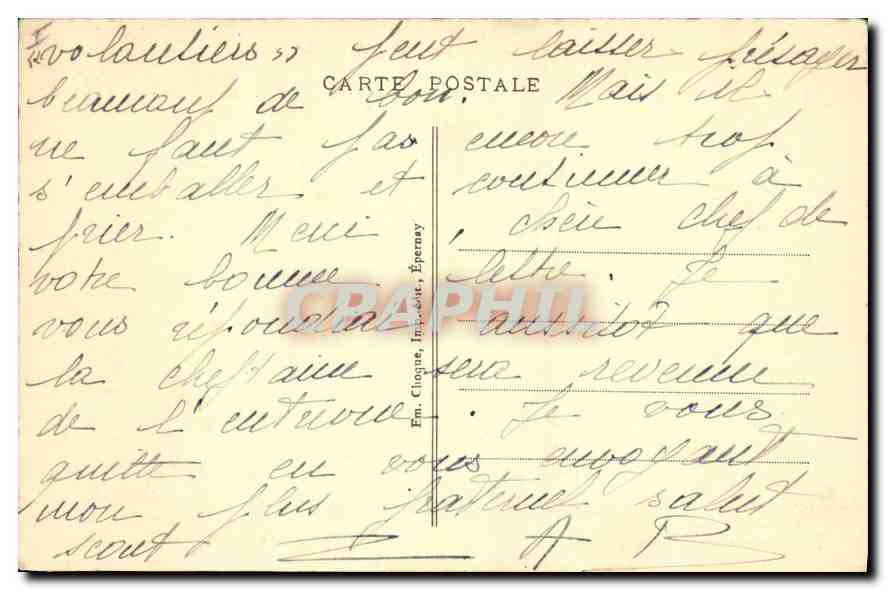 « volontiers » peut laisser présager
CARTE POSTALE
beaucoup de bon. Mais il
ne faut pas encore trop
s'emballer et continuer à
prier. Merci, chef de
votre bonne lettre. Je
vous répondrai aussitôt que
la cheftaine sera revenue
de l'entrevue. Je vous
quitte en vous envoyant
mon plus fraternel salut
scout
Em. Choque, Imp.-Édit., Épernay
CPAPHIL